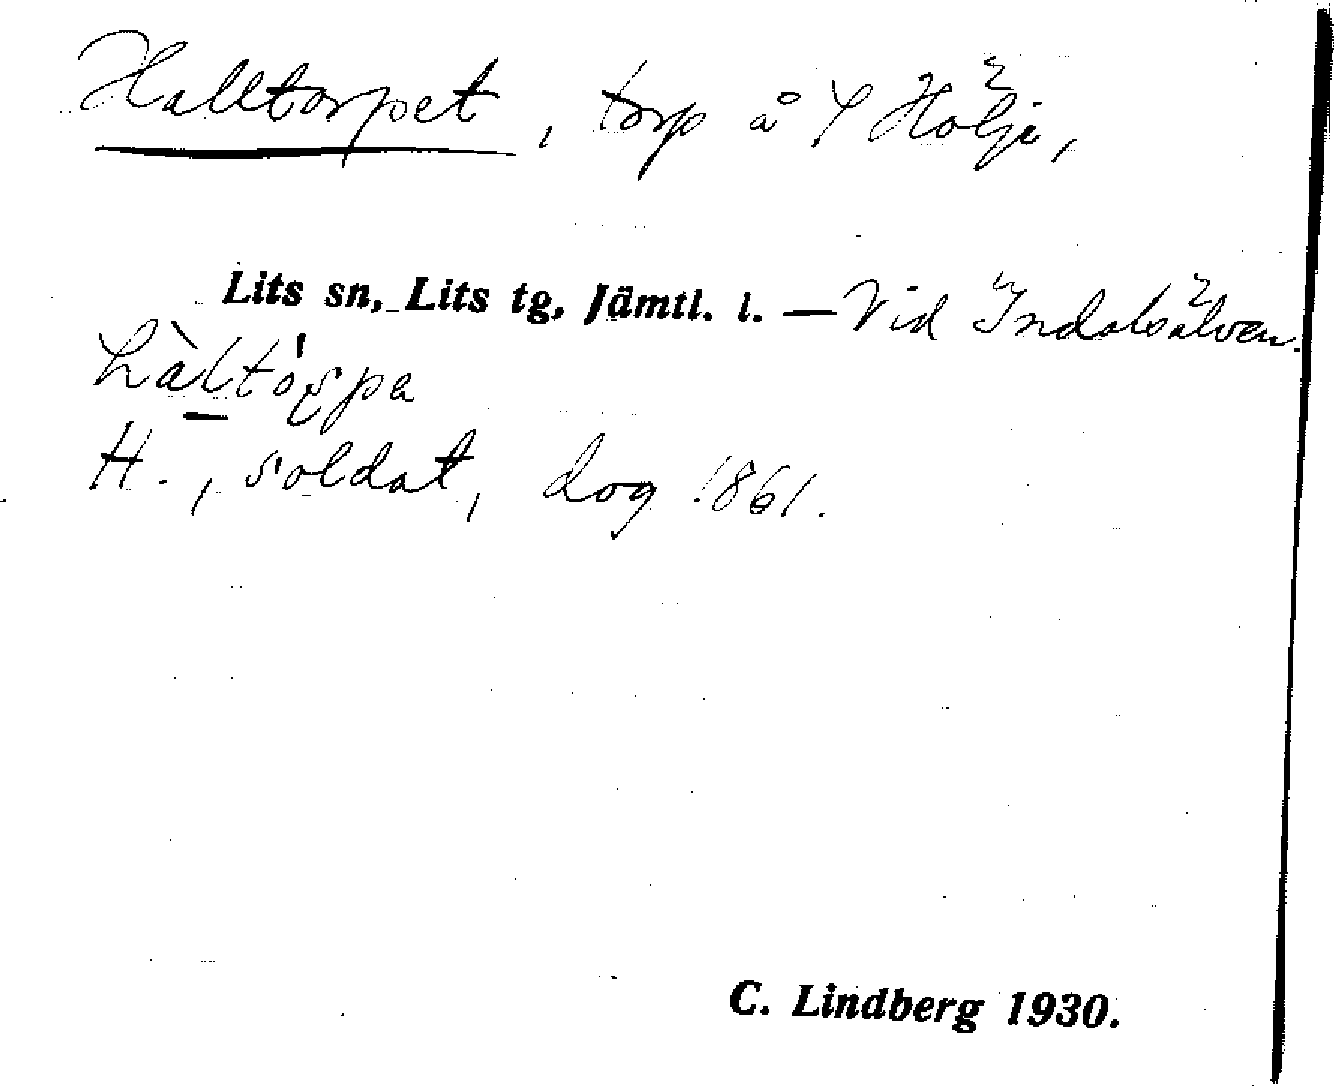 Halltorpet, torp å Y Hölje,
Lits sn, Lits tg, Jämtl. l. — Vid Indalsälven.
H., soldat, dog 1861.
C. Lindberg 1930.